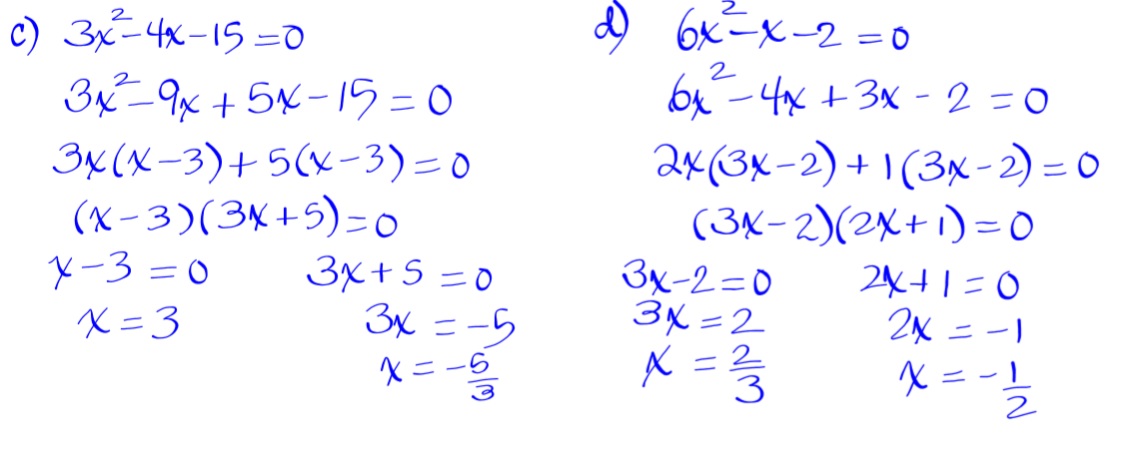 c) 3x²-4x-15=0
3x²-9x+5x-15=0
3x(x-3)+5(x-3)=0
(x-3)(3x+5)=0
x-3=0 3x+5=0
x=3 3x=-5
x=-5/3
d) 6x²-x-2=0
6x²-4x+3x-2=0
2x(3x-2)+1(3x-2)=0
(3x-2)(2x+1)=0
3x-2=0 2x+1=0
3x=2 2x=-1
x=2/3 x=-1/2